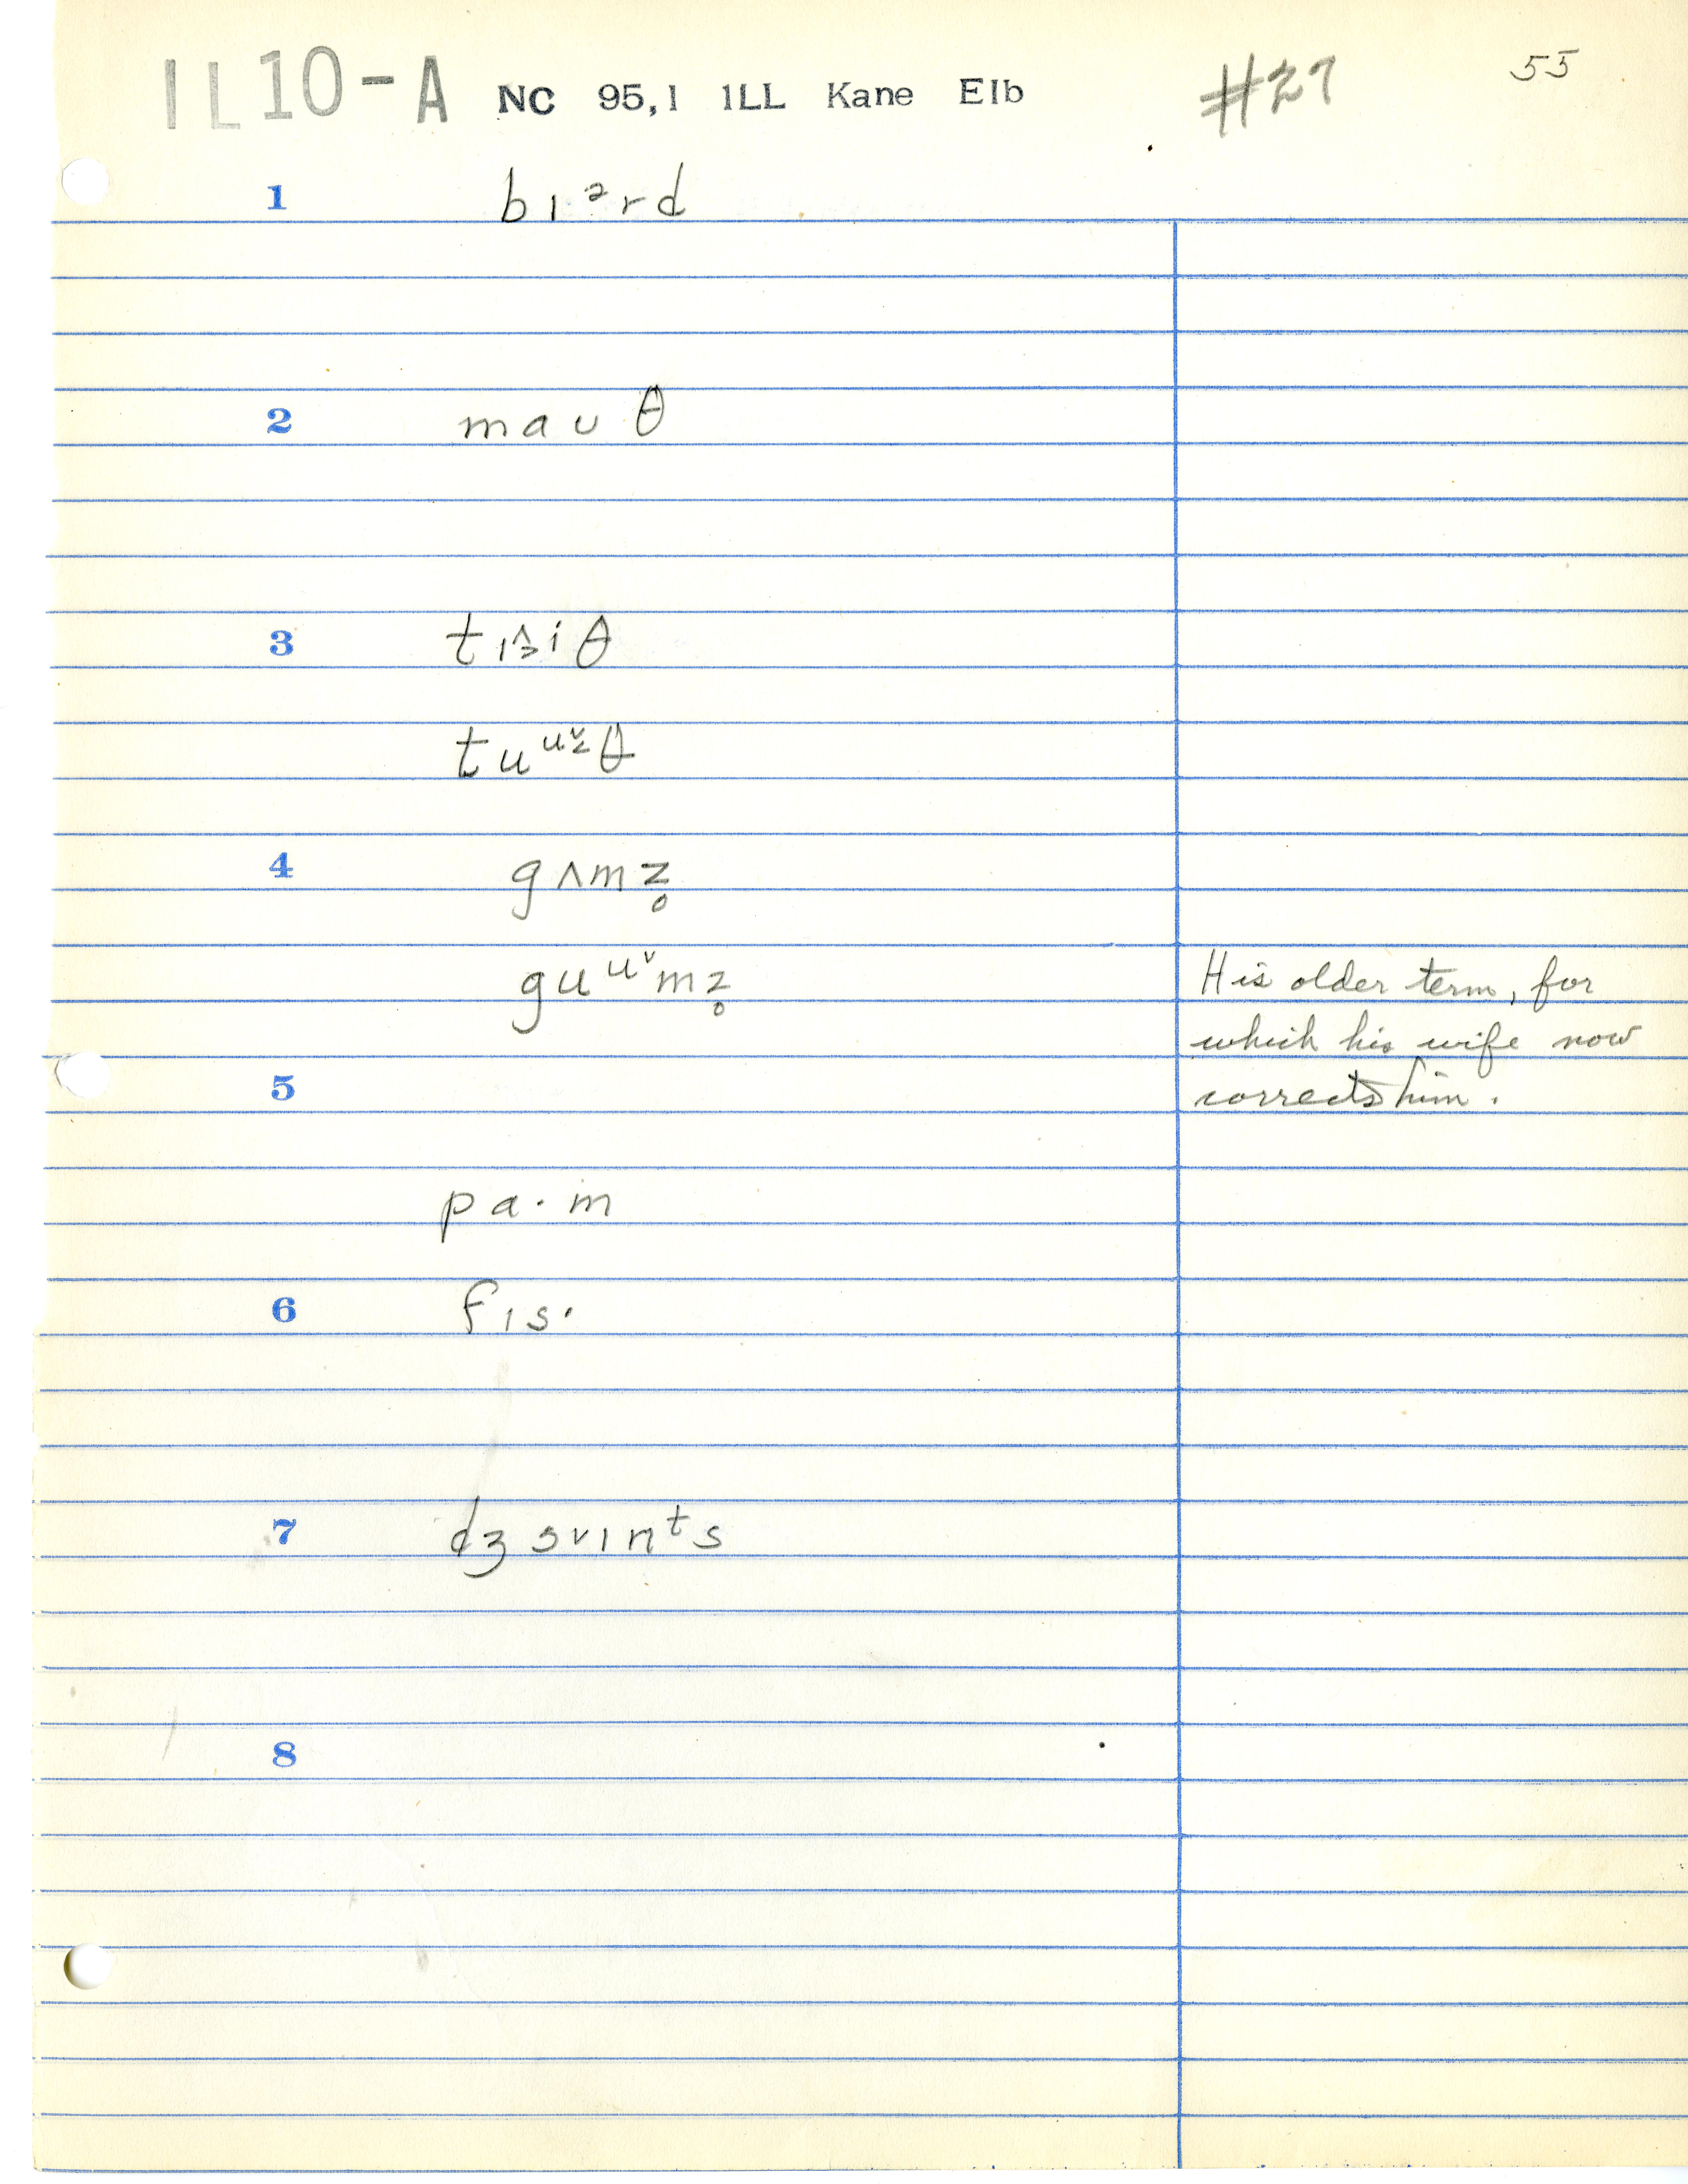 IL10-A NC 95,1 ILL Kane Elb #27 55
1 bɪᵊrd
2 maʊθ
3 tɪ^>iθ
tuᵘˇ<θ
4 gʌmz̥
guᵘˇmz̥ His older term, for
which his wife now
5 corrects him.
pa·m
6 fɪs·
7 dʒɔvɪnᵗs
8